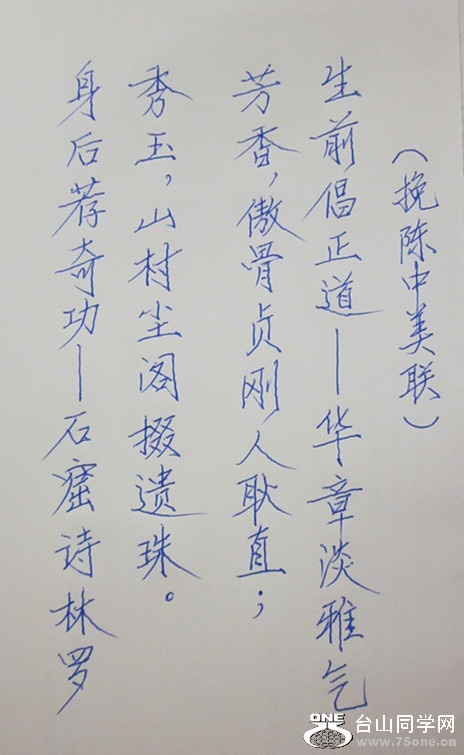 （挽陈中美联）
生前倡正道—华章淡雅气
芳香，傲骨贞刚人耿直；
身后荐奇功—石窟诗林罗
秀玉，山村尘阁掇遗珠。
ONE
台山同学网
www.75one.cn